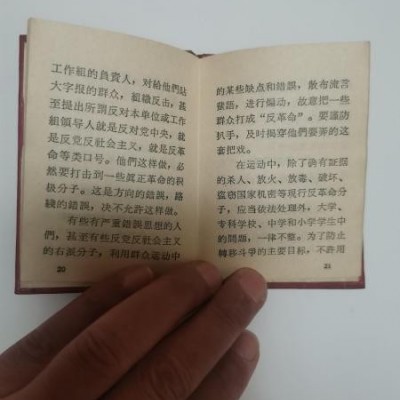 工作组的負責人，对給他們貼
大字报的群众，組織反击，甚
至提出所謂反对本单位或工作
組領导人就是反对党中央，就
是反党反社会主义，就是反革
命等类口号。他們这样做，必
然要打击到一些眞正革命的积
极分子。这是方向的錯誤，路
綫的錯誤，决不允許这样做。
有些有严重錯誤思想的人
們，甚至有些反党反社会主义
的右派分子，利用群众运动中
20
的某些缺点和錯誤，散布流言
蜚語，进行煽动，故意把一些
群众打成“反革命”。要謹防
扒手，及时揭穿他們耍弄的这
套把戏。
在运动中，除了确有証据
的杀人、放火、放毒、破坏、
盗窃国家机密等现行反革命分
子，应当依法处理外，大学、
专科学校、中学和小学学生中
的問題，一律不整。为了防止
轉移斗爭的主要目标，不許用
21